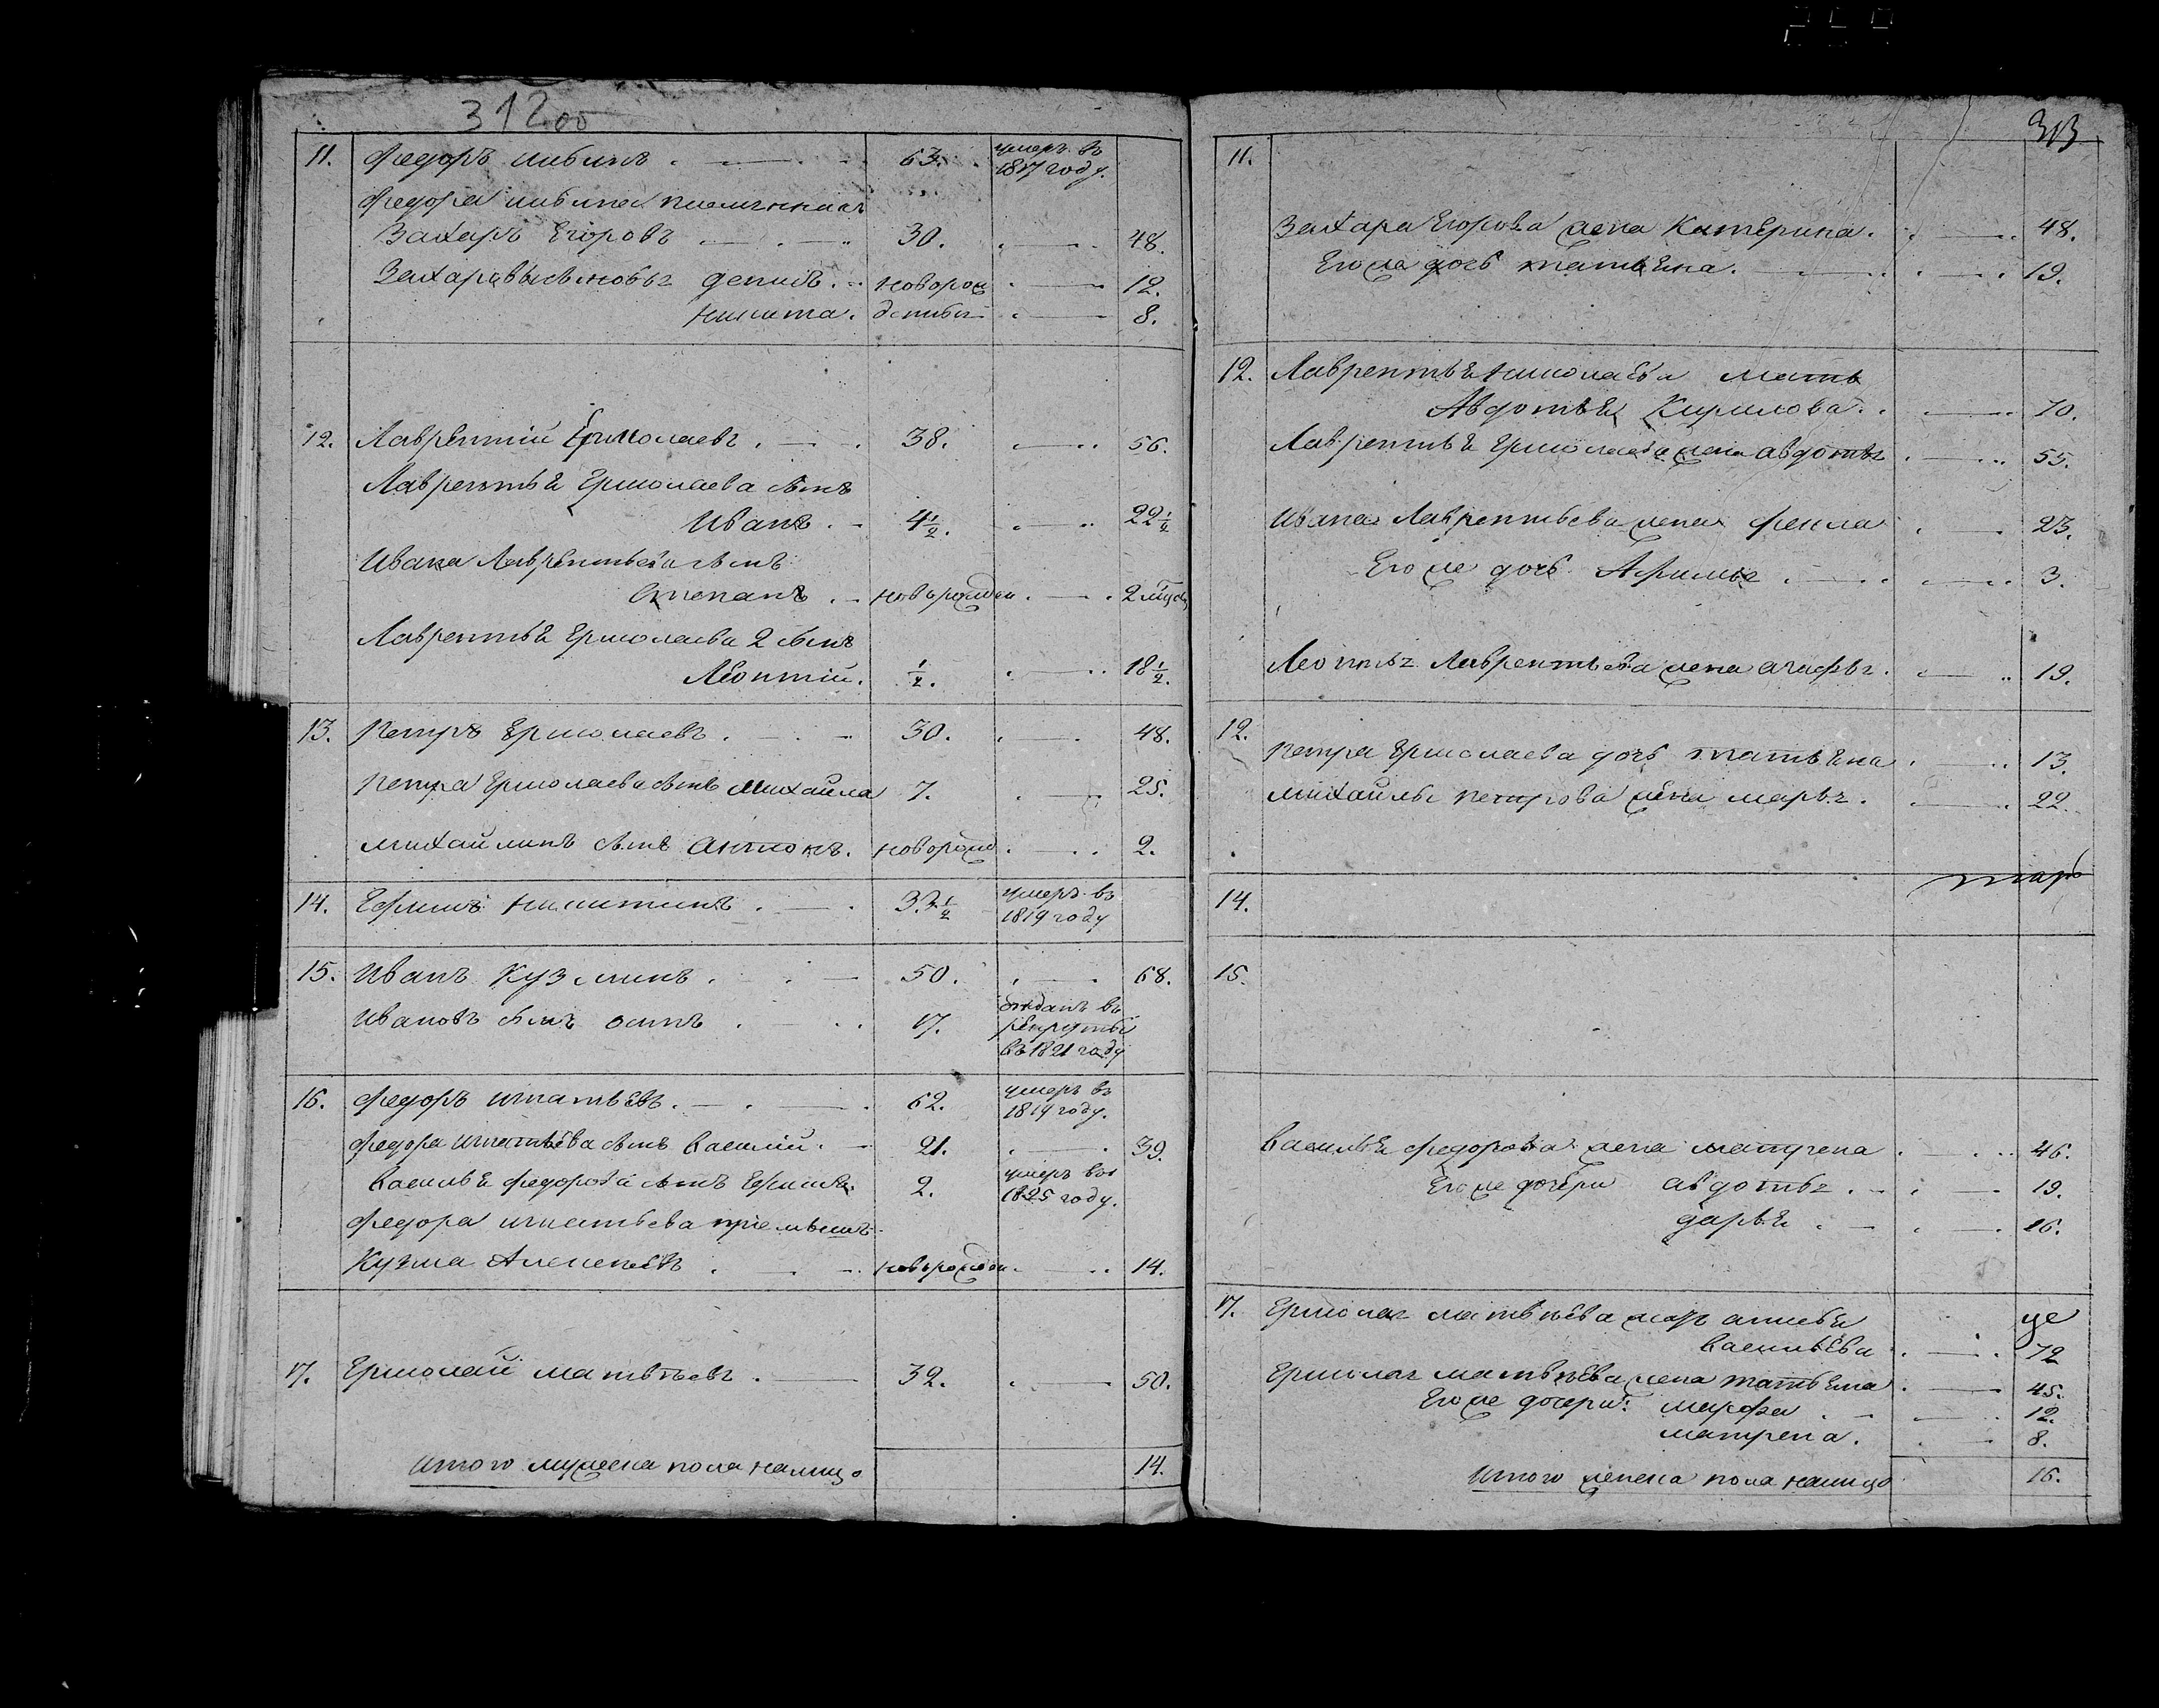 312 об
11. Федоръ 63. умеръ въ
1817 году.
Федора племянникъ
Захаръ Егоровъ 30. 48.
Захаровы сыновья Денисъ новорож 12.
Никита. денные 8.
12. Лаврентий Ермолаевъ 38. 56.
Лаврентья Ермолаева сынъ
Иванъ 4 1/2. 22 1/2
Ивана Лаврентьева сынъ
Степанъ новорожден 2 мѣсец
Лаврентья Ермолаева 2 сынъ
Леонтий. 1/2. 18 1/2.
13. Петръ Ермолаевъ 30. 48.
Петра Ермолаева сынъ Михайла 7. 25.
Михайлинъ сынъ Антонъ. новорожд 2.
14. Ефимъ Никитинъ 33 1/2 умеръ въ
1819 году
15. Иванъ Кузминъ 50. 68.
Ивановъ сынъ Осипъ 17. отданъ въ
рекруты
въ 1821 году
16. Федоръ Игнатьевъ 62. умеръ въ
1819 году.
Федора Игнатьева сынъ Василий 21. 39.
Василья Федорова сынъ Ефимъ 2. умеръ въ
1825 году.
Федора Игнатьева приемышъ
Кузма Алексеевъ новорожден 14.
17. Ермолай Матвѣевъ 32. 50.
Итого мужеска пола налицо 14.
313
11.
Захара Егорова жена Катерина. 48.
Его же дочь Татьяна. 19.
12. Лаврентья Ермолаева мать
Авдотья Кирилова 70.
Лаврентья Ермолаева жена Авдотья 55.
Ивана Лаврентьева жена Фекла 23.
Его же дочь Афимья 3.
Леонтья Лаврентьева жена Агафья 19.
12.
Петра Ермолаева дочь Татьяна 13.
Михайлы Петрова жена Марья. 22.
14.
15.
Василья Федорова жена Матрена 46.
Его же дочери Авдотья 19.
Дарья 16.
17. Ермолая Матвѣева
Васильева 72
Ермолая Матвѣева жена Татьяна 45.
Его же дочери: Марфа 12.
Матрена. 8.
Итого женска пола налицо 16.